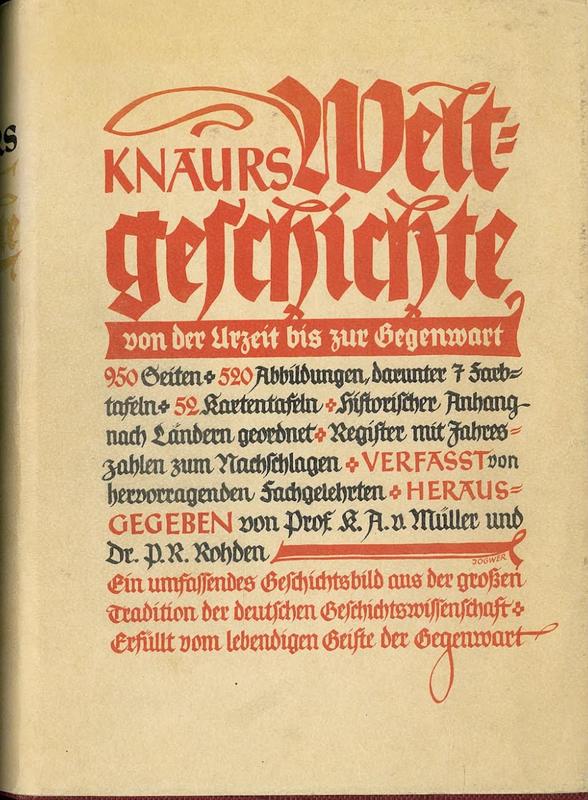 KNAURS Welt=
geschichte
von der Urzeit bis zur Gegenwart
950 Seiten + 520 Abbildungen, darunter 7 Farb=
tafeln + 52 Kartentafeln + Historischer Anhang
nach Ländern geordnet + Register mit Jahres=
zahlen zum Nachschlagen + VERFASST von
hervorragenden Fachgelehrten + HERAUS=
GEGEBEN von Prof. K. A. v. Müller und
Dr. P. R. Rohden
JOGWER
Ein umfassendes Geschichtsbild aus der großen
Tradition der deutschen Geschichtswissenschaft +
Erfüllt vom lebendigen Geiste der Gegenwart